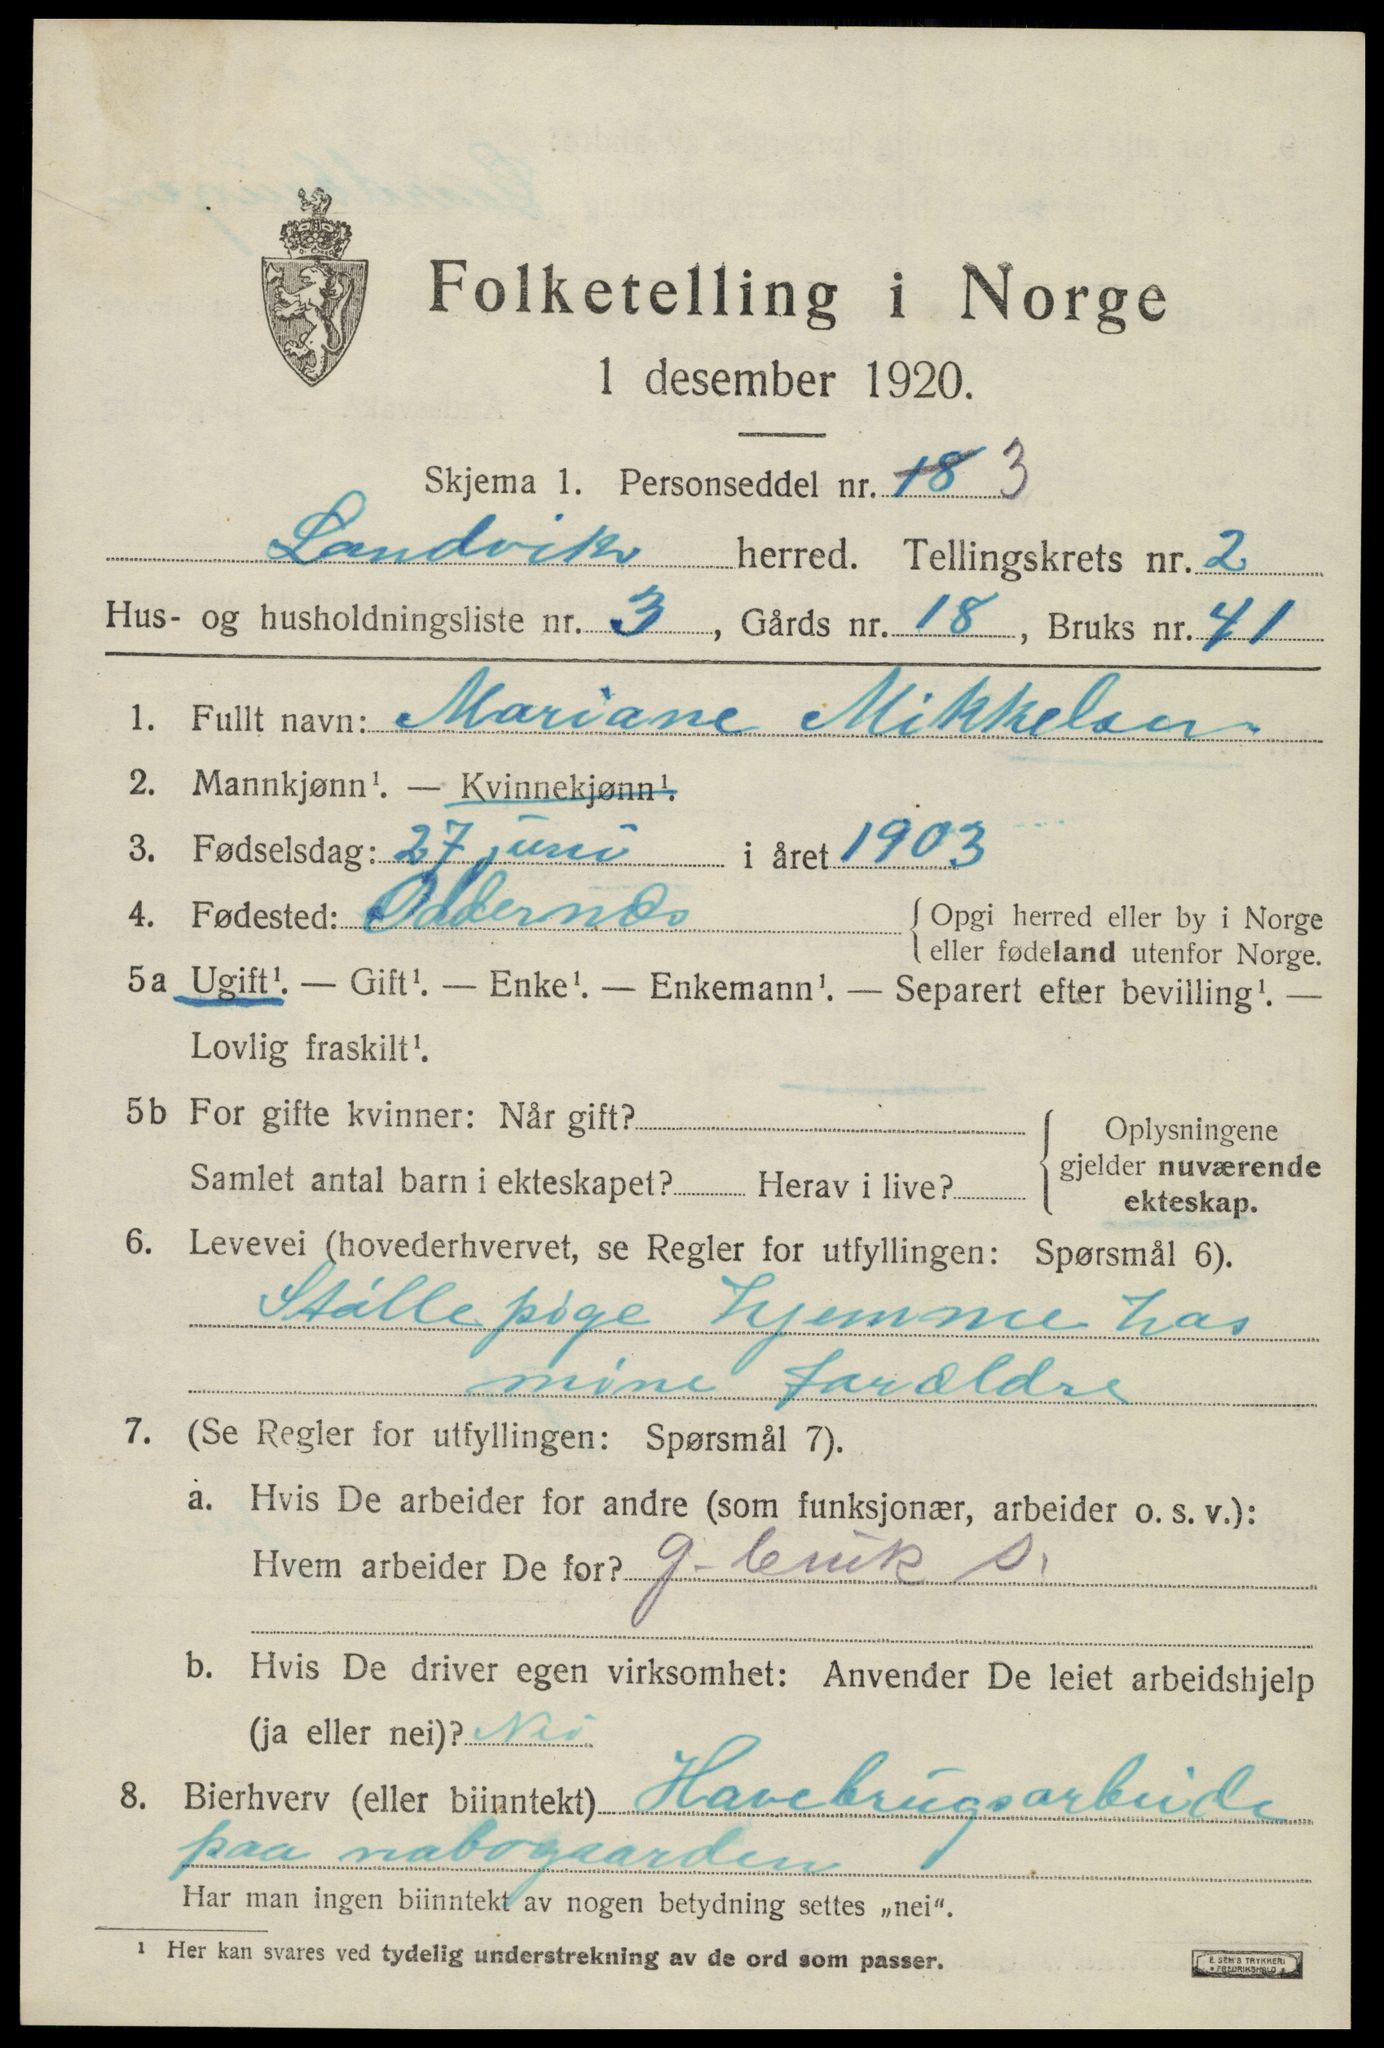 Folketelling i Norge
1 desember 1920.
Skjema 1. Personseddel nr. 18 3
Landvik herred. Tellingskrets nr. 2
Hus- og husholdningsliste nr. 3, Gårds nr. 18, Bruks nr. 41
1. Fullt navn: Mariane Mikkelsen
2. Mannkjønn¹. — Kvinnekjønn¹.
3. Fødselsdag: 27 juni i året 1903
4. Fødested: Oddernes { Opgi herred eller by i Norge
eller fødeland utenfor Norge.
5a Ugift¹. — Gift¹. — Enke¹. — Enkemann¹. — Separert efter bevilling¹. —
Lovlig fraskilt¹.
5b For gifte kvinner: Når gift?
Samlet antal barn i ekteskapet? Herav i live?
{ Oplysningene
gjelder nuværende
ekteskap.
6. Levevei (hovederhvervet, se Regler for utfyllingen: Spørsmål 6).
pige hjemme hos
mine forældre
7. (Se Regler for utfyllingen: Spørsmål 7).
a. Hvis De arbeider for andre (som funksjonær, arbeider o. s. v.):
Hvem arbeider De for?
b. Hvis De driver egen virksomhet: Anvender De leiet arbeidshjelp
(ja eller nei)? Nei
8. Bierhverv (eller biinntekt) Havebrugsarbeide
paa nabogaarden
Har man ingen biinntekt av nogen betydning settes „nei“.
¹ Her kan svares ved tydelig understrekning av de ord som passer.
E. SEM'S TRYKKERI
FREDRIKSHALD